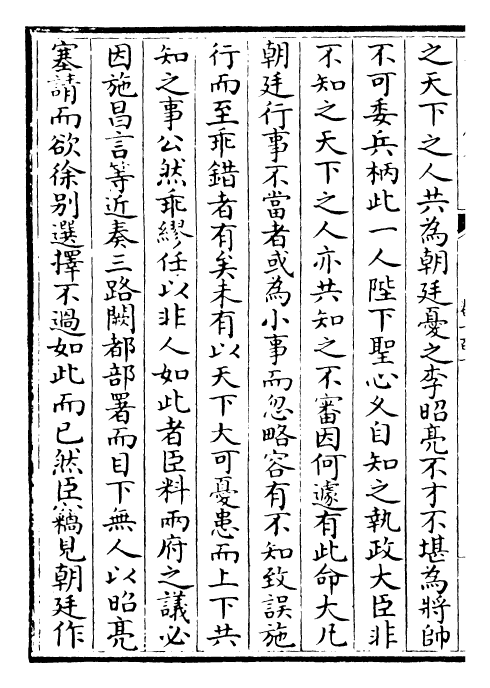 之天下之人共為朝廷憂之李昭亮不才不堪為將帥
不可委兵柄此一人陛下聖心久自知之執政大臣非
不知之天下之人亦共知之不審因何遽有此命大凡
朝廷行事不當者或為小事而忽略容有不知致誤施
行而至乖錯者有矣未有以天下大可憂患而上下共
知之事公然乖繆任以非人如此者臣料兩府之議必
因施昌言等近奏三路闕都部署而目下無人以昭亮
塞請而欲徐別選擇不過如此而已然臣竊見朝廷作